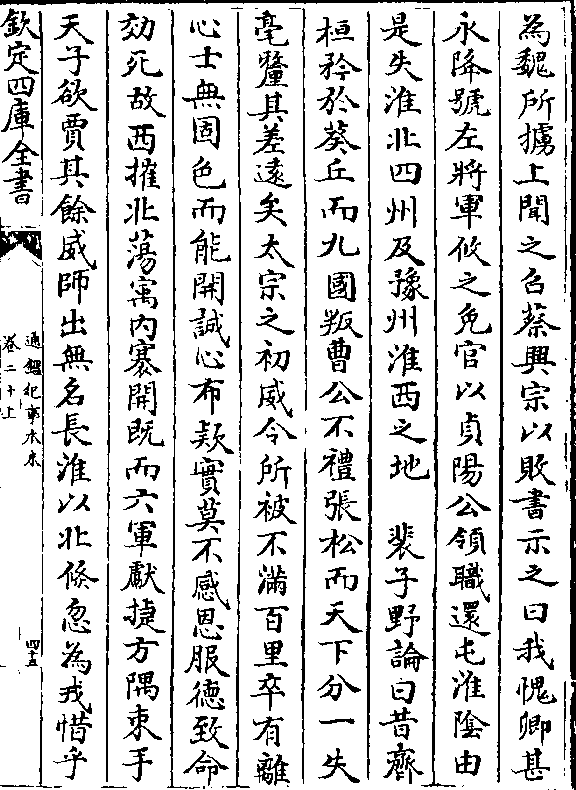 為魏所擄上聞之召蔡興宗以敗書示之曰我愧卿甚
永降號左將軍攸之免官以貞陽公領職還屯淮隂由
是失淮北四州及豫州淮西之地　裴子野論曰昔齊
桓矜於葵丘而九國叛曹公不禮張松而天下分一失
毫釐其差逺矣太宗之初威令所被不滿百里卒有離
心士無固色而能開誠心布欵實莫不感恩服德致命
効死故西摧北蕩寓内褰開既而六軍獻捷方隅束手
天子欲賈其餘威師出無名長淮以北倐忽為戎惜乎
欽定四庫全書
通鑑紀事本末
卷二十上
四十五